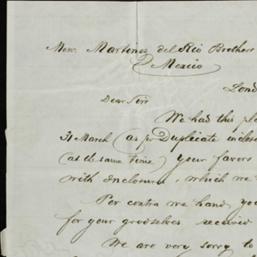 Mess. Martinez del Rio Brothers
Mexico
Lond
Dear Sirs
We had this ple
31 March (as pr Duplicate inclose
(at the same time) your favors
with inclosures, which we
Per contra we hand you
for your goodselves, received
We are very sorry to